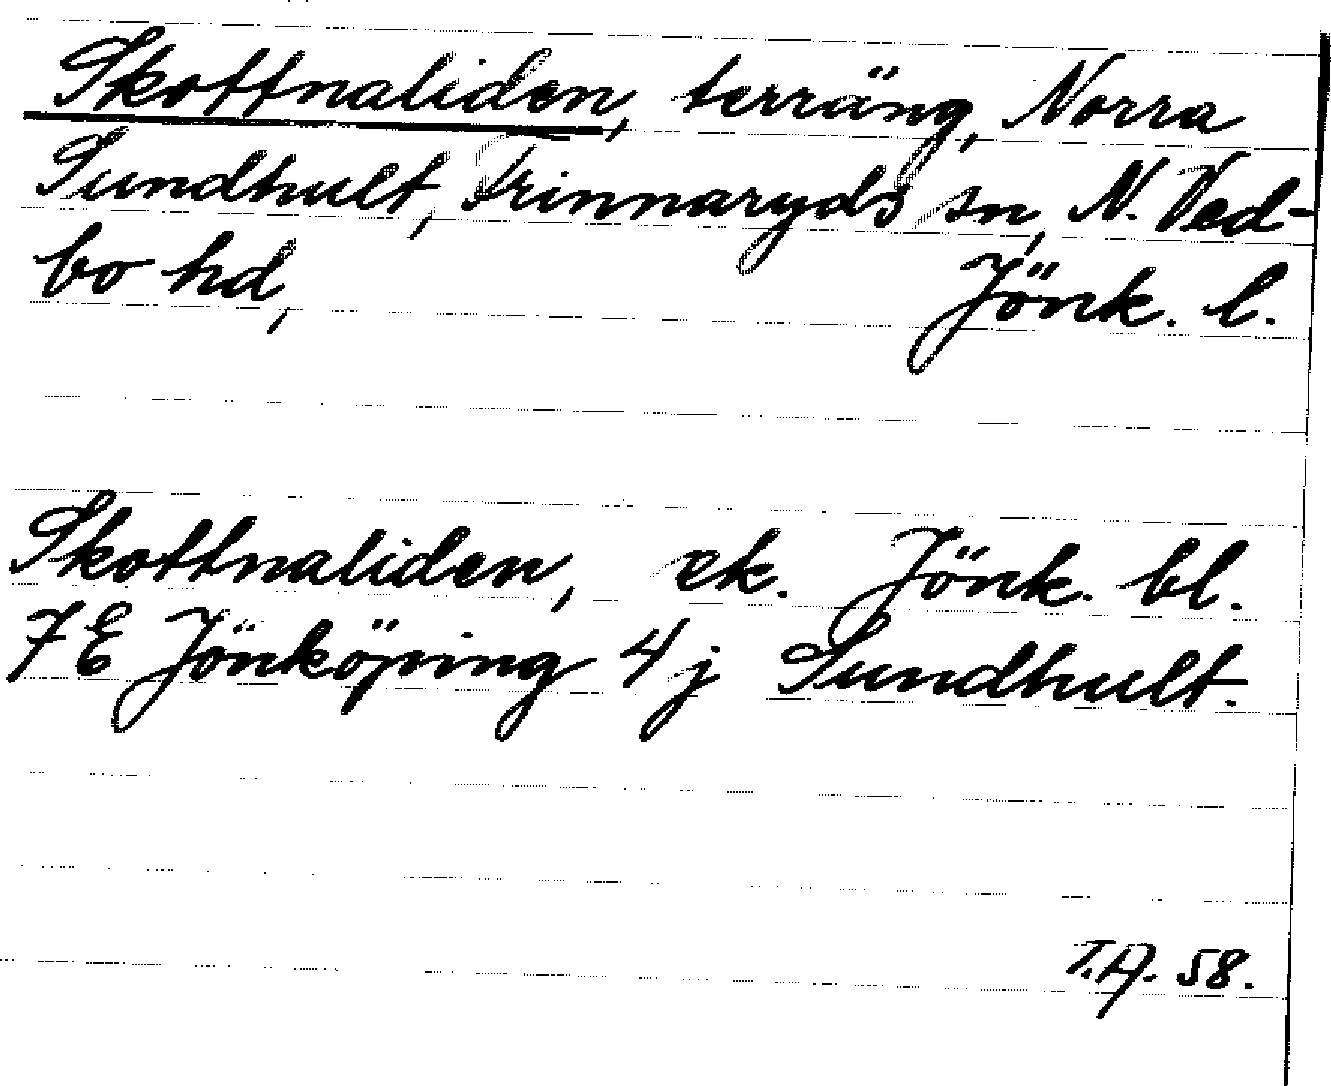 Skottnaliden, terräng, Norra
Sundhult, Frinnaryds sn, N. Ved-
bo hd, Jönk. l.
Skottnaliden, ek. Jönk. bl.
7E Jönköping 4j Sundhult.
T.A. 58.